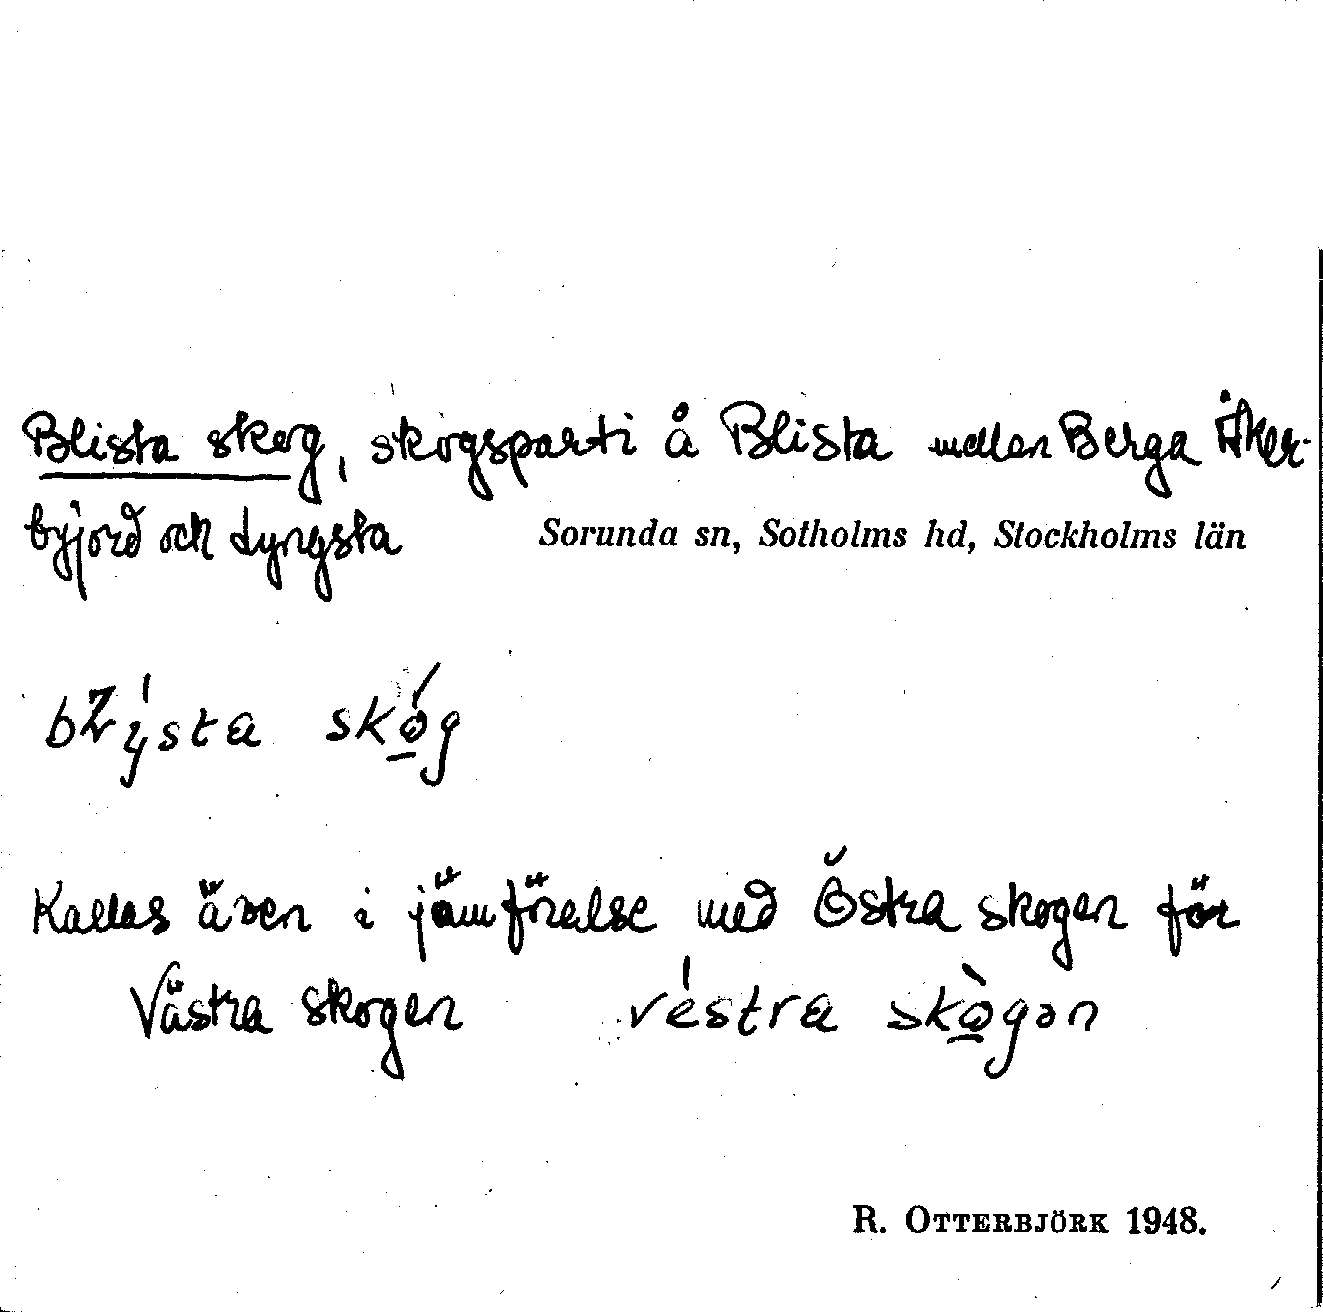 Blista skog, skogsparti å Blista mellan Berga Åker-
byjord och Lyngsta
Sorunda sn, Sotholms hd, Stockholms län
skóg
Kallas även i jämförelse med Östra skogen för
Västra skogen véstra skògən
R. OTTERBJÖRK 1948.